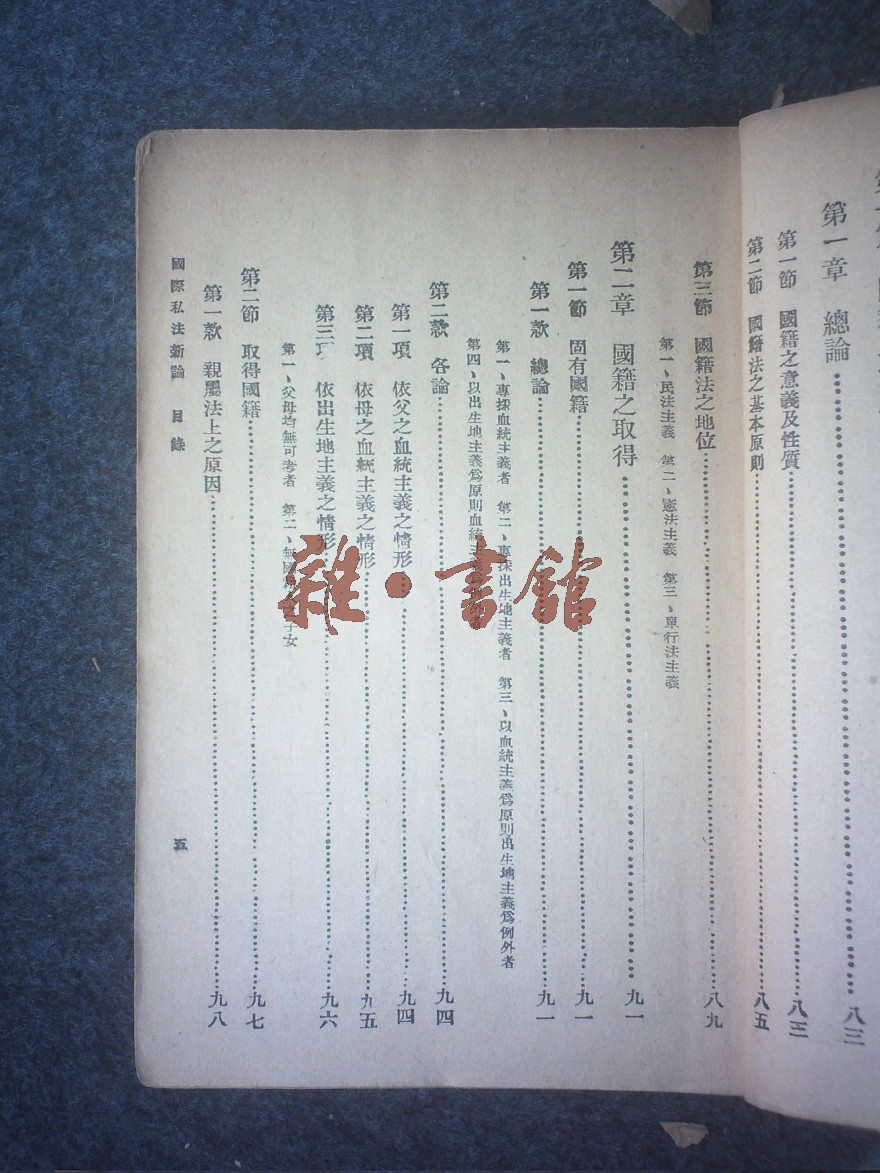 第一章　總論……八三
第一節　國籍之意義及性質……八三
第二節　國籍法之基本原則……八五
第三節　國籍法之地位……八九
第一、民法主義　第二、憲法主義　第三、單行法主義
第二章　國籍之取得……九一
第一節　固有國籍……九一
第一款　總論……九一
第一、專採血統主義者　第二、專採出生地主義者　第三、以血統主義爲原則出生地主義爲例外者
第四、以出生地主義爲原則血統主義
第二款　各論……九四
第一項　依父之血統主義之情形……九四
第二項　依母之血統主義之情形……九五
第三項　依出生地主義之情形……九六
第一、父母均無可考者　第二、無國籍子女
第二節　取得國籍……九七
第一款　親屬法上之原因……九八
國際私法新論　目錄
五
雜·書館